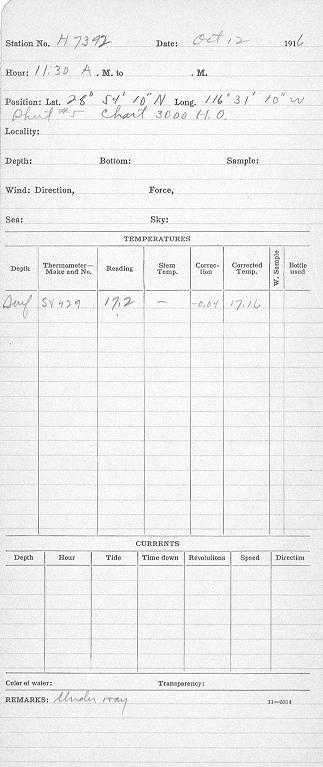 Station No. H 7392 Date: Oct 12 1916
Hour: 11:30 A. M. to . M.
Position: Lat. 28° 54' 10" N Long. 116° 31' 10" W
#5 Chart 3000 H.O.
Locality:
Depth: Bottom: Sample:
Wind: Direction, Force,
Sea: Sky:
TEMPERATURES
Depth Thermometer—Make and No. Reading Stem Temp. Correction Corrected Temp. W. Sample Bottle used
Surf SY429 17.2 — -0.04 17.16
CURRENTS
Depth Hour Tide Time down Revolutions Speed Direction
Color of water: Transparency:
REMARKS: Under way 11—5314